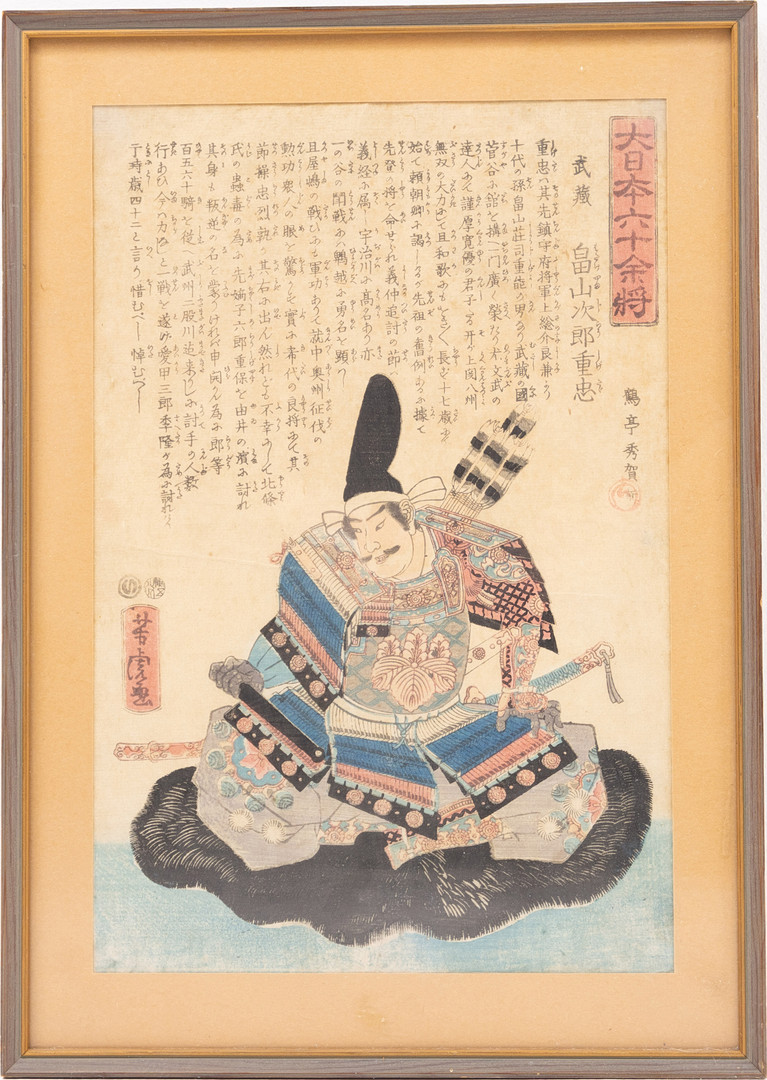 大日本六十余将
武蔵　畠山次郎重忠
鶴亭秀賀記
重忠ハ其先鎮守府将軍上総介良兼より
十代の孫畠山荘司重能の男なり武蔵の國
菅谷に舘を搆へ一門廣く榮えたり尤文武の
達人にて謹厚寛優の君子なり其上関八州
無双の大力にて且和歌にもをさ〳〵長ず十七歳にて
始て頼朝卿に謁しけるが先祖の舊例あるに據て
先登の将を命ぜられ義仲追討の節
義経に属し宇治川に高名あり亦
一の谷の閧戦にハ鵯越に勇名を顕し
且屋嶋の戦ひにも軍功ありて就中奥州征伐の
勲功衆人の眼を驚かせり實に希代の良将にて其
節操忠烈孰か其右に出ん然れども不幸にして北條
氏の蟲毒の為に先嫡子六郎重保を由井の濱に討れ
其身も叛逆の名を蒙りければ申開かん為に郎等
百五六十騎を従へ武州二股川迄来りしに討手の人数に
行あひ今ハ力なしと一戦を遂げ愛甲三郎季隆が為に討れたり
于時歳四十二と言り惜むべし悼むべし
芳虎画